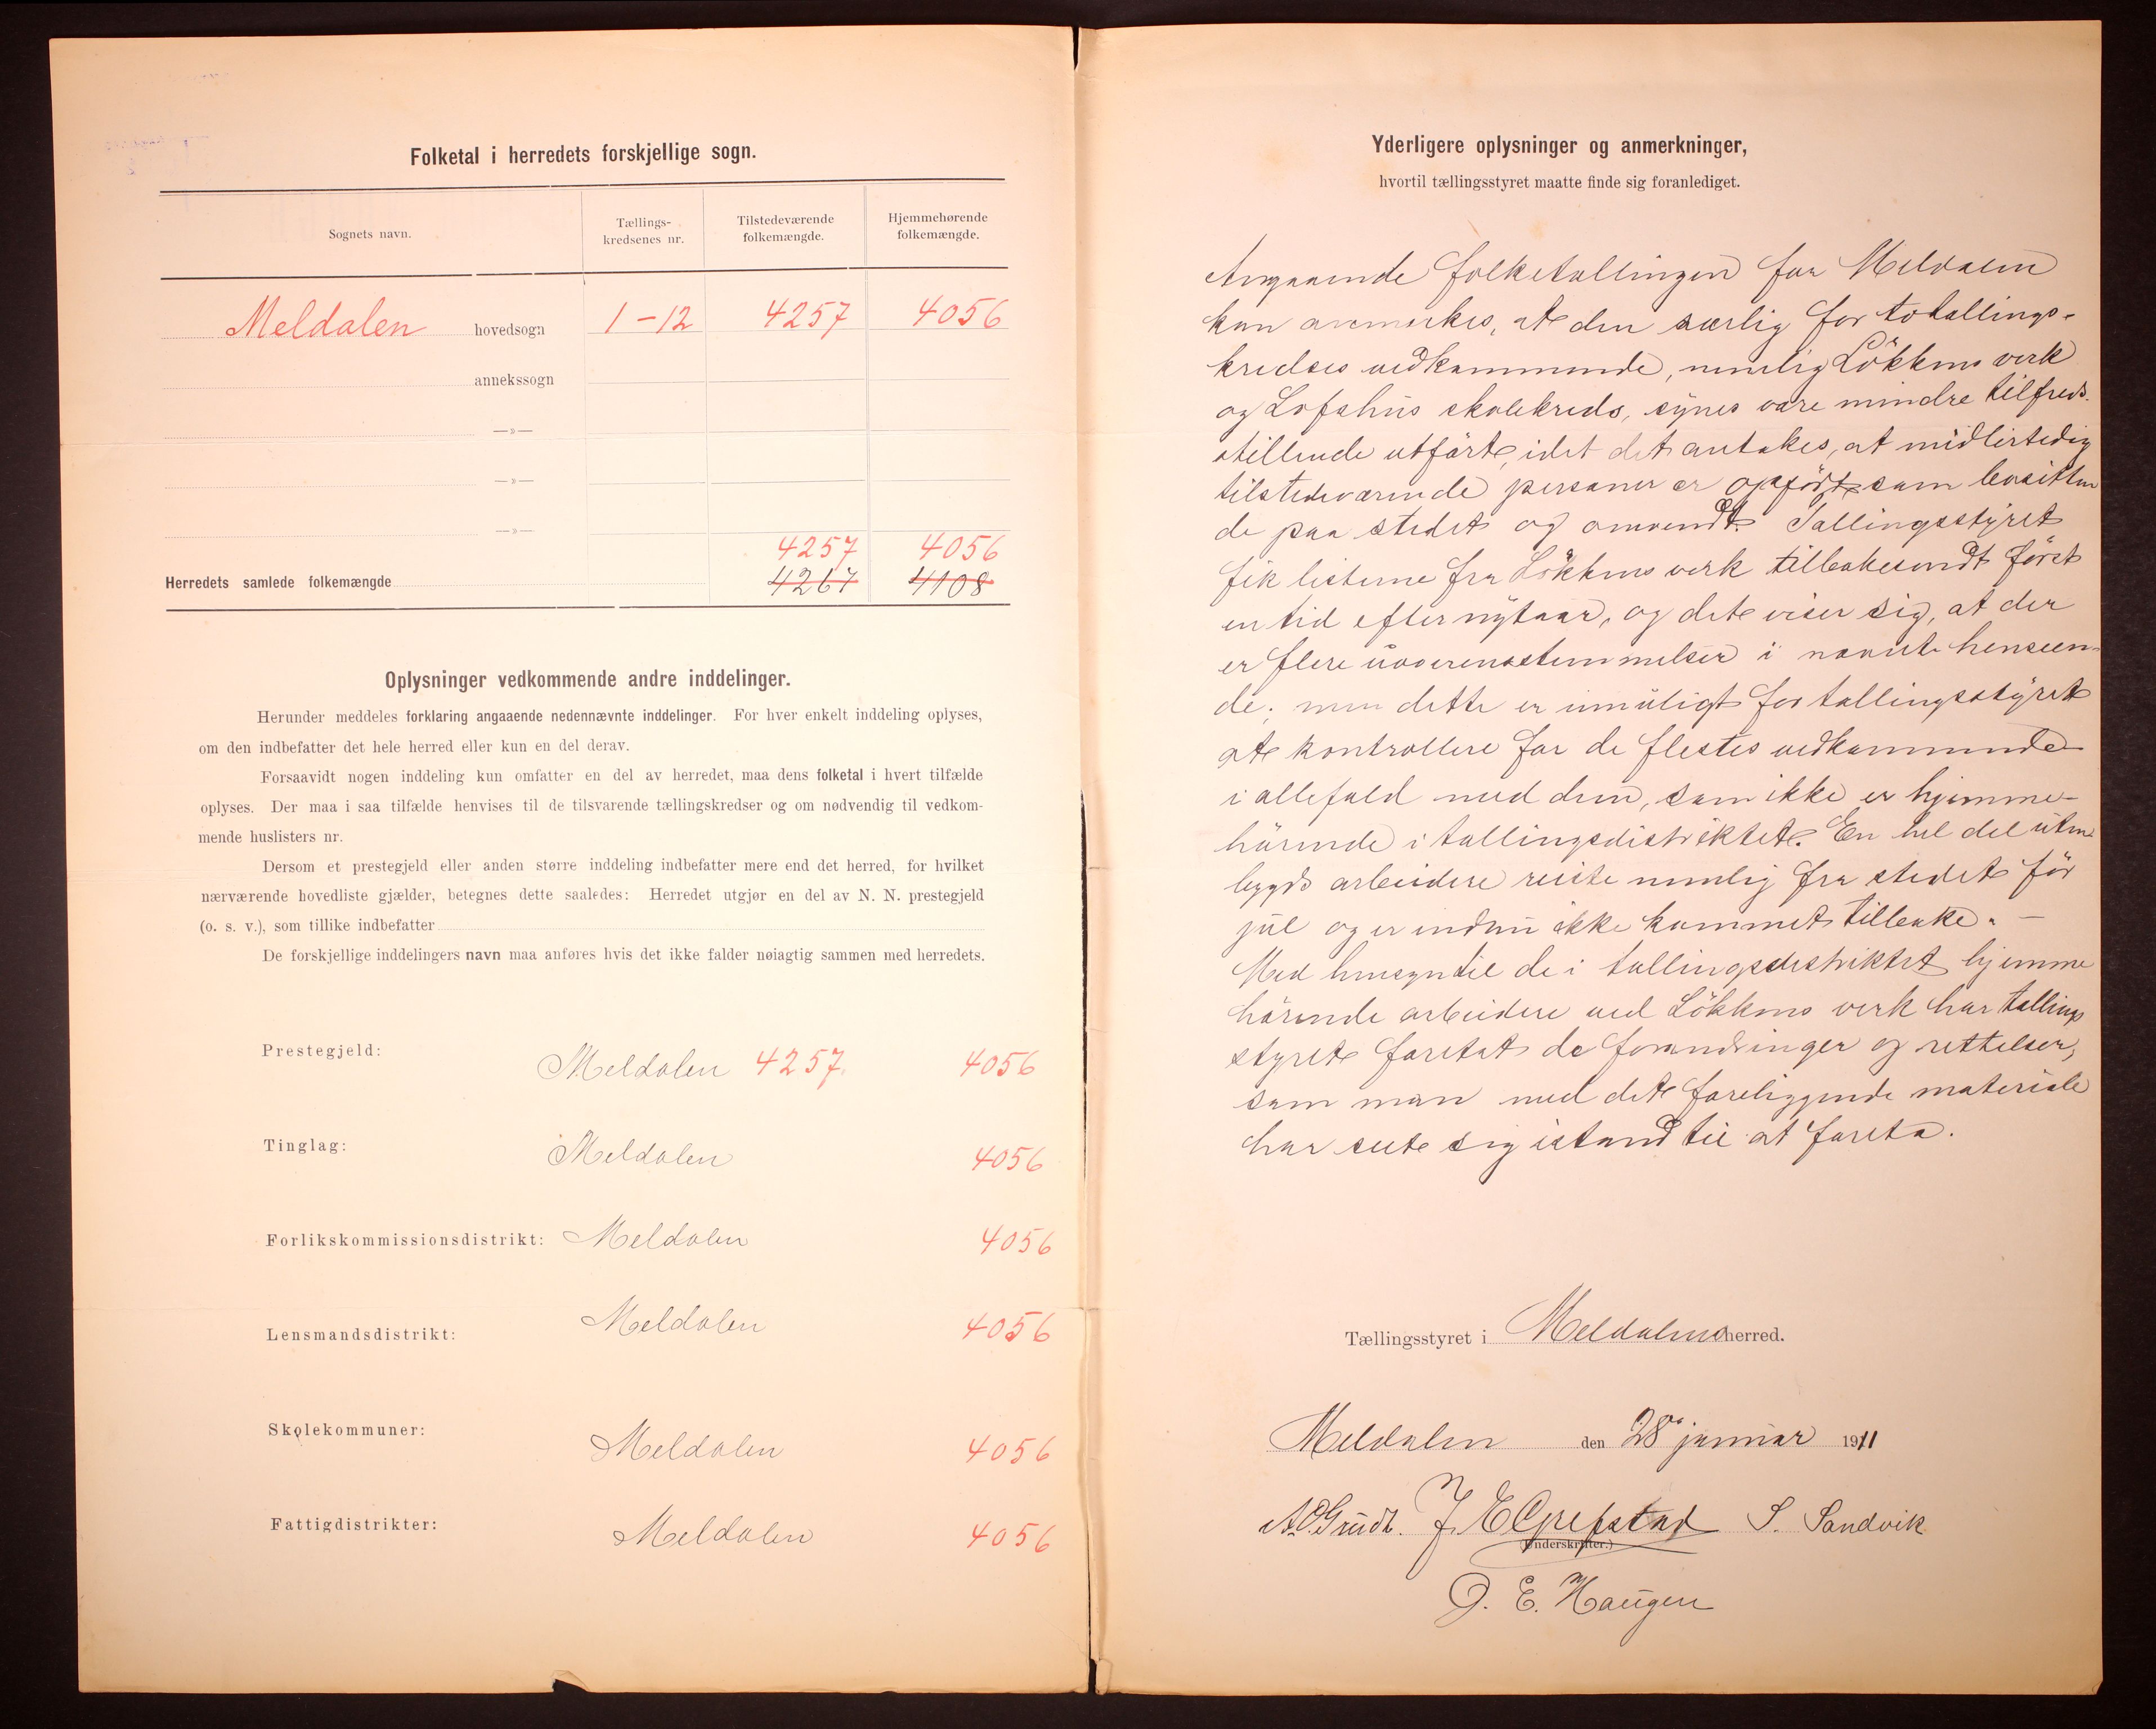 Folketal i herredets forskjellige sogn.
Sognets navn.
Tællings-
kredsenes nr.
Tilstedeværende
folkemængde.
Hjemmehørende
folkemængde.
Meldalen hovedsogn 1-12 4257 4056
annekssogn
—»—
—»—
—»—
4257 4056
Herredets samlede folkemængde 4267 4108
Oplysninger vedkommende andre inddelinger.
Herunder meddeles forklaring angaaende nedennævnte inddelinger. For hver enkelt inddeling oplyses,
om den indbefatter det hele herred eller kun en del derav.
Forsaavidt nogen inddeling kun omfatter en del av herredet, maa dens folketal i hvert tilfælde
oplyses. Der maa i saa tilfælde henvises til de tilsvarende tællingskredser og om nødvendig til vedkom-
mende huslisters nr.
Dersom et prestegjeld eller anden større inddeling indbefatter mere end det herred, for hvilket
nærværende hovedliste gjælder, betegnes dette saaledes: Herredet utgjør en del av N. N. prestegjeld
(o. s. v.), som tillike indbefatter
De forskjellige inddelingers navn maa anføres hvis det ikke falder nøiagtig sammen med herredets.
Prestegjeld: Meldalen 4257. 4056
Tinglag: Meldalen 4056
Forlikskommissionsdistrikt: Meldalen 4056
Lensmandsdistrikt: Meldalen 4056
Skolekommuner: Meldalen 4056
Fattigdistrikter: Meldalen 4056
Yderligere oplysninger og anmerkninger,
hvortil tællingsstyret maatte finde sig foranlediget.
Angaaende folketællingen for Meldalen
kan anmerkes, at den særlig for to tællings-
kredses vedkommende, nemlig Løkkens verk
og Lofshus skolekreds, synes være mindre tilfreds-
stillende utført, idet det antakes, at midlertidig
tilstedeværende personer er opført som bositten
de paa stedet og omvendt. Tællingsstyret
fik listerne fra Løkkens verk tilbakesendt først
en tid efter nytaar, og det viser sig, at der
er flere uoverensstemmelser i nævnte henseen-
de; men dette er umuligt for tællingsstyret
at kontrollere for de flestes vedkommende
i allefald med dem, som ikke er hjemme-
hørende i tællingsdistriktet. En hel del uten
bygds arbeidere reiste nemlig fra stedet før
jul og er endnu ikke kommet tilbake. —
Med hensyn til de i tællingsdistriktet hjemme
hørende arbeidere ved Løkkens verk har tællings
styret foretat de forandringer og rettelser,
som man med det foreliggende materiale
har seet sig istand til at foreta.
Tællingsstyret i Meldalens herred.
Meldalen den 28 januar 1911
J. E. Grefstad S. Sandvik
(Underskrifter.)
O. E. Haugen